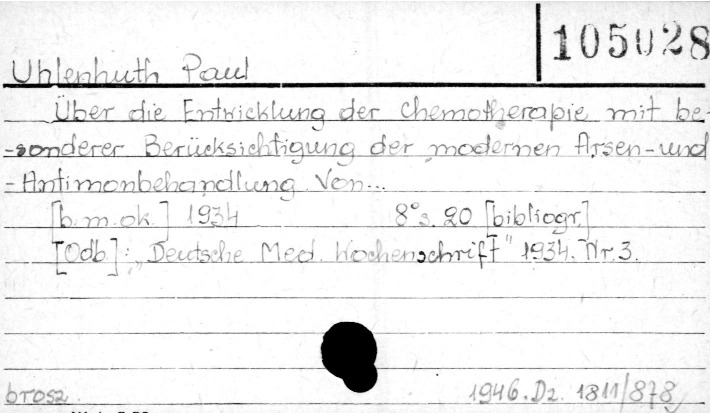 105028
Uhlenhuth Paul
Über die Entwicklung der Chemotherapie mit be-
-sonderer Berücksichtigung der modernen Arsen-und
-Antimonbehandlung Von...
[b.m.ok.] 1934 8° s. 20 [bibliogr.]
[Odb.]: „Deutsche Med. Wochenschrift" 1934. Nr. 3.
brosz. 1946. Dz. 1811/878